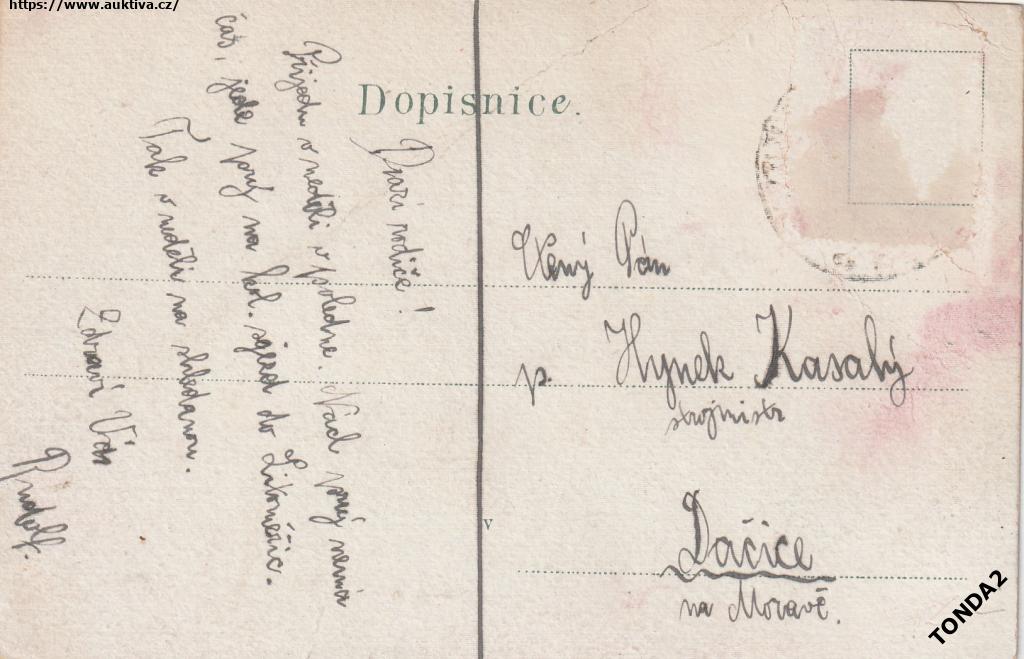 https://www.auktiva.cz/
Dopisnice.
Drazí rodiče!
Přijedu v neděli v poledne. Václ prý nemá
čas, jede prý na kol. sjezd do Litoměřic.
Tak v neděli na shledanou.
Zdraví Vás
Rudolf.
Ctěný Pán
p. Hynek Kasalý
strojmistr
v Dačice
na Moravě.
TONDA2